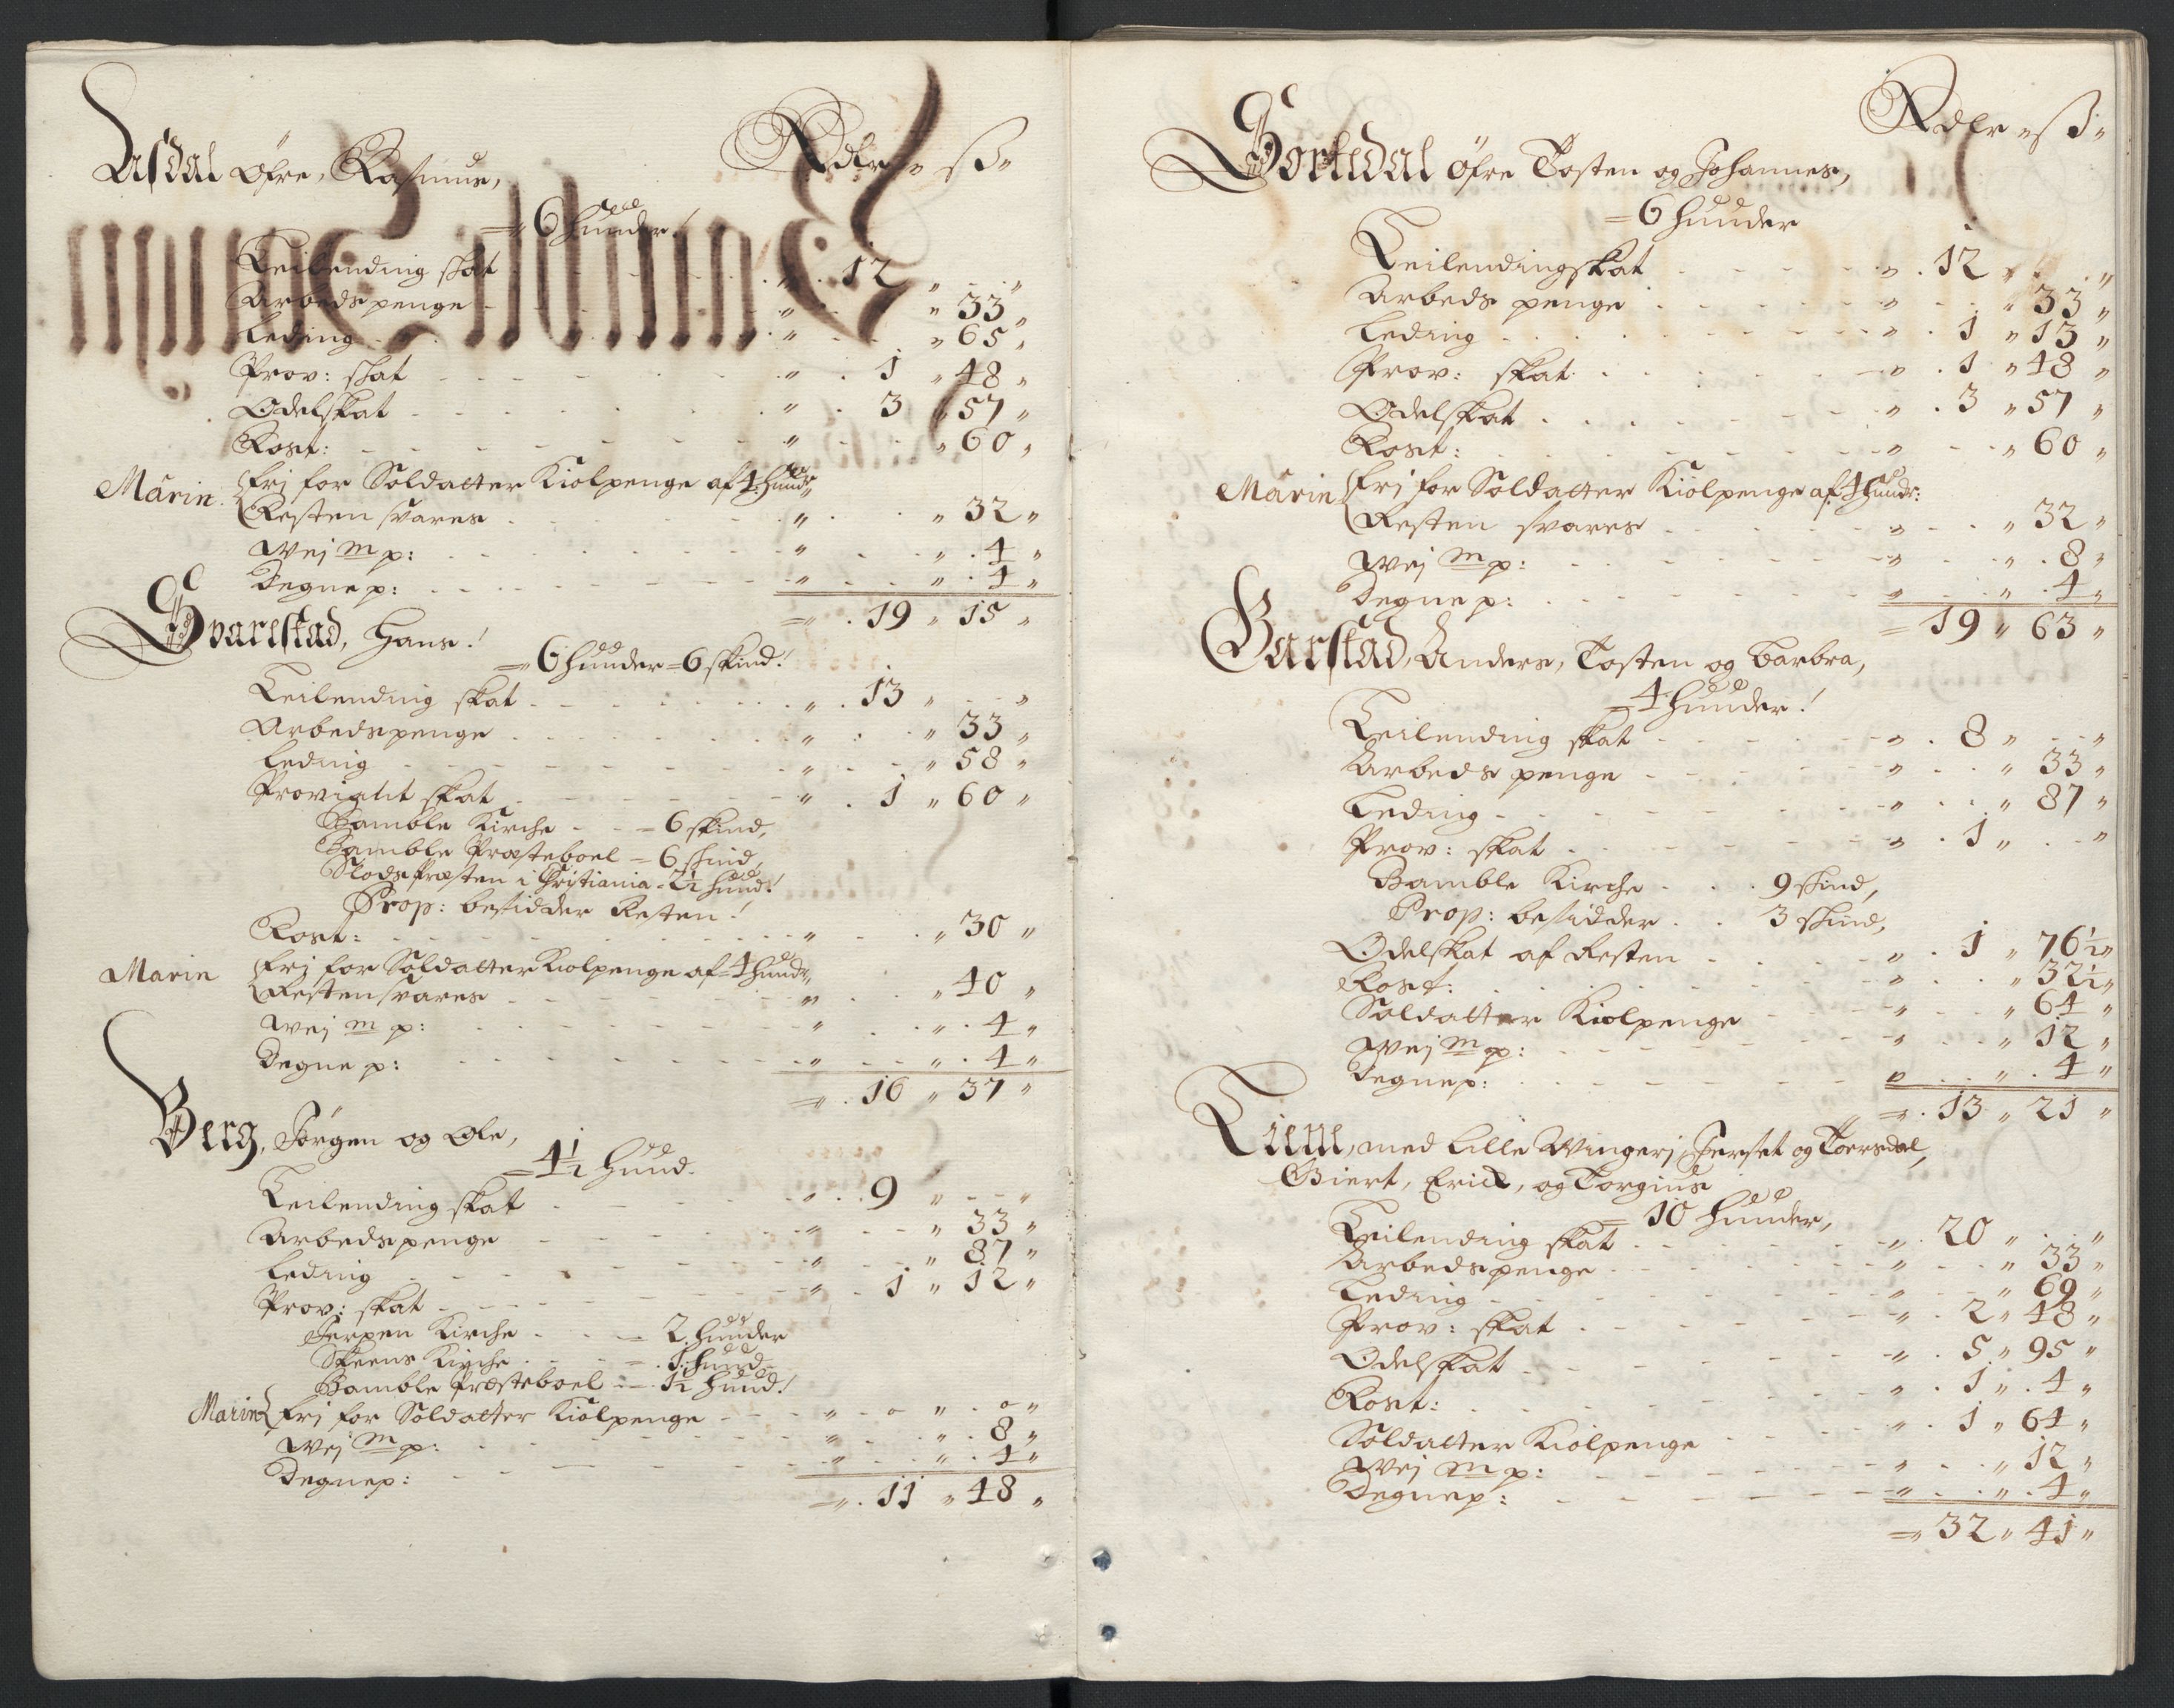 Rdlr " ß "
Asdal Øfre, Rasmus,
= 6 Huuder!
Leilending skat " 12 " "
Arbedspenge " " 33 "
Leding " " 65 "
Prov: skat " 1 " 48 "
Odelskat " 3 " 57 "
Rost: " " 60 "
Marin. fri for Soldatter Kiolpenge af 4 Huudr
Resten svares " " 32 "
Wej m p: " " 4 "
Degne p: " " 4 "
= 19 " 15 "
Svarestad, Hans!
= 6 Huuder = 6 skind!
Leilending skat " 13 " "
Arbedspenge " " 33 "
Leding " " 58 "
Proviant skat " 1 " 60 "
Bamble Kirche = 6 skind,
Bamble Præsteboel = 6 skind,
Slodspræsten i Christiania - 2½ Huud!
Prop: besidder Resten!
Rost: " " 30 "
Marin fri for Soldatter Kiolpenge af 4 Huudr
Resten svares " " 40 "
Wej m p: " " 4 "
Degne p: " " 4 "
= 16 " 37 "
Berg, Jørgen og Ole,
= 4½ Huud.
Leilending skat " 9 " "
Arbedspenge " " 33 "
Leding " " 87 "
Prov: skat " 1 " 12 "
Jerpen Kirche = 2 Huuder
Skeens Kirche = 1 Huud
Bamble Præsteboel = 1½ Huud!
Marin fri for Soldatter Kiolpenge " o " o "
Wej m p: " " 8 "
Degne p: " " 4 "
= 11 " 48 "
Rdlr " ß "
Gortedal Øfre Tosten og Johannes,
= 6 Huuder
Leilendingskat " 12 " "
Arbeds penge " " 33 "
Leding " 1 " 13 "
Prov: skat " 1 " 48 "
Odelskat " 3 " 57 "
Rost: " " 60 "
Marin fri for Soldatter Kiolpenge af 4 Huudr:
Resten svares " " 32 "
Wej m p: " " 8 "
Degne p: " " 4 "
= 19 " 63 "
Garstad, Anders, Tosten og Barbra,
= 4 Huuder!
Leilending skat " 8 " "
Arbeds penge " " 33 "
Leding " " 87 "
Prov: skat " 1 " "
Bamble Kirche 9 skind,
Prop: besidder 3 skind,
Odelskat af Resten " 1 " 76½ "
Rost: " " 32½ "
Soldatter Kiolpenge " " 64 "
Wej m p: " " 12 "
Degne p: " " 4 "
= 13 " 21 "
med Lille Wingerj, Herset og Toersdal,
Giert, Erick, og Torgius
= 10 Huuder,
Leilending skat " 20 " "
Arbedspenge " " 33 "
Leding " " 69 "
Prov: skat " 2 " 48 "
Odelskat " 5 " 95 "
Rost: " 1 " 4 "
Soldatter Kiolpenge " 1 " 64 "
Wej m p: " " 12 "
Degne p: " " 4 "
= 32 " 41 "